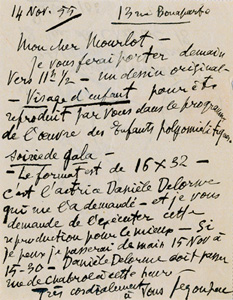 14 Nov. 55 13 rue Bonaparte
Mon cher Mourlot -
je vous ferai porter demain
vers 11h 1/2 - un dessin original -
- Visage d'enfant - pour être
reproduit par vous dans le programme
de l'œuvre des Enfants
soirée de gala -
- Le format est de 16 x 32 -
c'est l'actrice Danièle Delorme
qui me l'a demandé - et je vous
demande de l'exécuter cette
reproduction pour le mieux - Si
je puis je passerai demain 15 Nov à
15-30 - Danièle Delorme doit passer
rue de Chabrol à cette heure
Très cordialement à vous